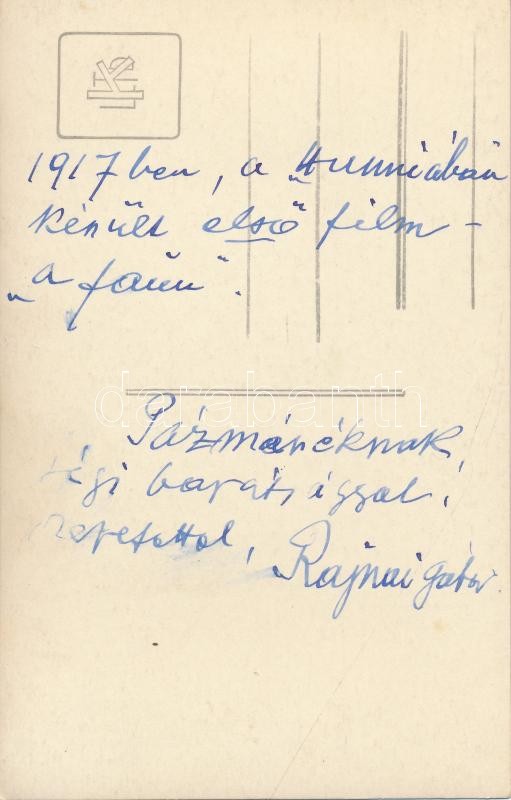 1917 ben, a „Hunniában
készült első" film -
„a faun".
darabanth
Pázmánéknak,
régi barátsággal,
szeretettel,
Rajnai Gábor